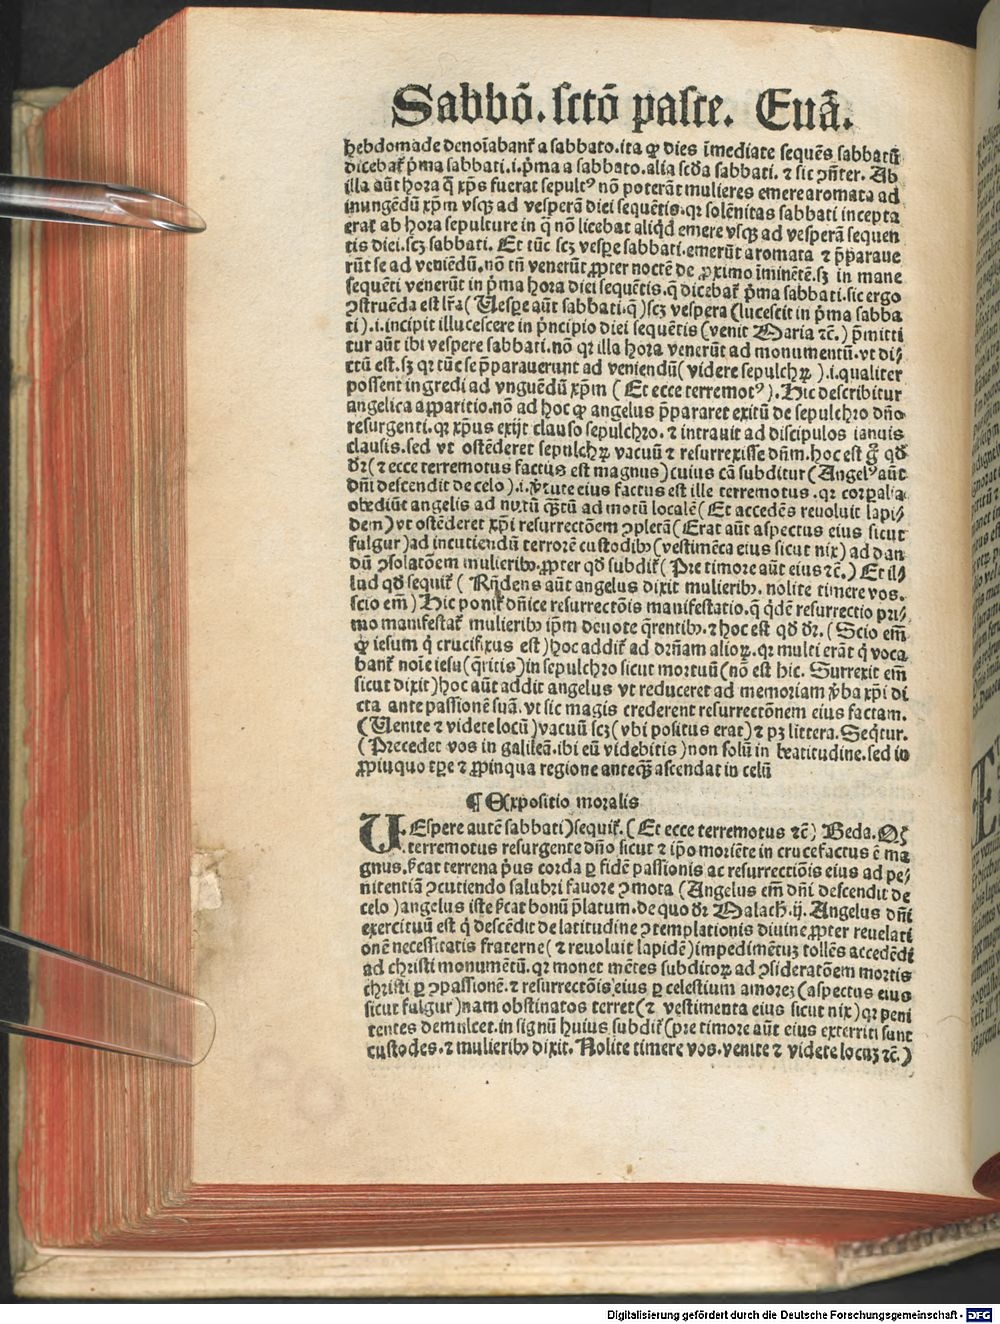 Sabbō. sctō pasce. Euā.
hebdomade denoīabant᷑ a sabbato. ita ꝙ dies īmediate sequēs sabbatū
dicebat᷑ p̄ma sabbati. i. p̄ma a sabbato. alia scd̄a sabbati. ⁊ sic ɔñter. Ab
illa aūt hora q̄ xp̄s fuerat sepultꝰ nō poterāt mulieres emere aromata ad
inungēdū xp̄m vsqꝫ ad vesperā diei sequētis. qꝛ solēnitas sabbati incepta
erat ab hora sepulture in q̄ nō licebat aliqd̄ emere vsqꝫ ad vesperā sequen
tis diei. scꝫ sabbati. Et tūc scꝫ vespe sabbati. emerūt aromata ⁊ p̄paraue
rūt se ad veniēdū. nō tn̄ venerūt ꝓpter noctē de ꝓximo īminētē. sꝫ in mane
sequēti venerūt in p̄ma hora diei sequētis. q̄ dicebat᷑ p̄ma sabbati. sic ergo
ɔstruēda est lr̄a (Uesꝑe aūt sabbati. q̄) scꝫ vespera (lucescit in p̄ma sabba
ti). i. incipit illucescere in p̄ncipio diei sequētis (venit Maria ⁊c̄.) p̄mitti
tur aūt ibi vespere sabbati. nō qꝛ illa hora venerūt ad monumentū. vt di⸗
ctū est. sꝫ qꝛ tūc se p̄parauerunt ad veniendū (videre sepulchꝝ). i. qualiter
possent ingredi ad vnguēdū xp̄m (Et ecce terremotꝰ). Hic describitur
angelica apparitio. nō ad hoc ꝙ angelus p̄pararet exitū de sepulchro dño
resurgenti. qꝛ xp̄us exijt clauso sepulchro. ⁊ intrauit ad discipulos ianuis
clausis. sed vt ostēderet sepulchꝝ vacuū ⁊ resurrexisse dn̄m. hoc est g̊ qd̄
dr̄ (⁊ ecce terremotus factus est magnus) cuius cā subditur (Angelꝰ aūt
dn̄i descendit de celo). i. ꝟtute eius factus est ille terremotus. qꝛ corꝑalia
obediūt angelis ad nutū q̄ꝫtū ad motū localē (Et accedēs reuoluit lapi⸗
dem) vt ostēderet xp̄i resurrectōem ɔpletā (Erat aūt aspectus eius sicut
fulgur) ad incutiendū terrorē custodibꝫ (vestimēta eius sicut nix) ad dan
dū ɔsolatōem mulieribꝫ. ꝓpter qd̄ subdit᷑ (Pre timore aūt eius ⁊c̄.) Et il⸗
lud qd̄ sequit᷑ (Rn̄dens aūt angelus dixit mulieribꝫ. nolite timere vos.
scio em̄) Hic ponit᷑ dn̄ice resurrectōis manifestatio. q̄ qdē resurrectio pri⸗
mo manifestat᷑ mulieribꝫ ip̄m deuote q̄rentibꝫ. ⁊ hoc est qd̄ dr̄. (Scio em̄
ꝙ iesum q̇ crucifixus est) hoc addit᷑ ad dr̄n̄am alioꝝ. qꝛ multi erāt q̇ voca
bant᷑ noīe iesu (q̄ritis) in sepulchro sicut mortuū (nō est hic. Surrexit em̄
sicut dixit) hoc aūt addit angelus vt reduceret ad memoriam ꝟba xp̄i di
cta ante passionē suā. vt sic magis crederent resurrectōnem eius factam.
(Uenite ⁊ videte locū) vacuū scꝫ (vbi positus erat) ⁊ pꝫ littera. Seq̇tur.
(Precedet vos in galileā. ibi eū videbitis) non solū in beatitudine. sed in
ꝓpinquo tꝑe ⁊ ꝓpinqua regione anteq̄ꝫ ascendat in celū
¶ Expositio moralis
UEspere autē sabbati) sequit᷑. (Et ecce terremotus ⁊c̄) Beda. Qꝫ
terremotus resurgente dño sicut ⁊ ip̄o moriēte in cruce factus ē ma
gnus. sͥcat terrena ṗus corda ꝑ fidē passionis ac resurrectiōis eius ad pe⸗
nitentiā ɔcutiendo salubri fauore ɔmota (Angelus em̄ dn̄i descendit de
celo) angelus iste sͥcat bonū p̄latum. de quo dr̄ Malach. ij. Angelus dn̄i
exercituū est q̇ descēdit de latitudine ɔtemplationis diuine ꝓpter reuelati
onē necessitatis fraterne (⁊ reuoluit lapidē) impedimētuꝫ tollēs accedēdi
ad christi monumētū. qꝛ monet mētes subditoꝝ ad ɔsideratōem mortis
christi ꝑ ɔpassionē. ⁊ resurrectōis eius ꝑ celestium amoreꝫ (aspectus eius
sicut fulgur) nam obstinatos terret (⁊ vestimenta eius sicut nix) qꝛ peni
tentes demulcet. in signū huius subdit᷑ (pre timore aūt eius exterriti sunt
custodes. ⁊ mulieribꝫ dixit. Nolite timere vos. venite ⁊ videte locuꝫ ⁊c̄.)
Digitalisierung gefördert durch die Deutsche Forschungsgemeinschaft - DFG